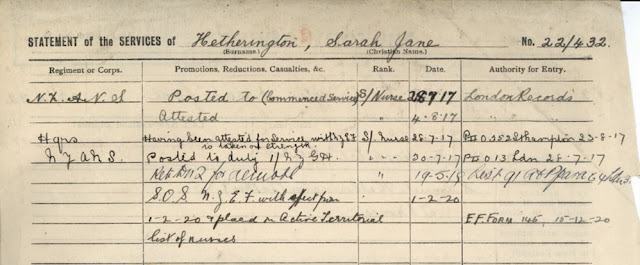 STATEMENT of the SERVICES of Hetherington, Sarah Jane No. 22/432.
(Surname.) (Christian Name.)
Regiment or Corps. Promotions, Reductions, Casualties, &c. Rank. Date. Authority for Entry.
N.Z.A.N.S Posted to (Commenced Service) S/Nurse 28 7 17 London Records
Attested " 4-8-17 " "
Hqrs Having been attested for service with NZEF is taken on strength. S/Nurse 28-7-17 23-8-17
NZANS. Posted to duty 1/NZGH. " " 20-7-17 Ldn. 28-7-17
for " 19-5-19
S.O.S N.Z.E.F with effect from 1-2-20
1-2-20 & placed on Active Territorial E.F. Form 145, 15-12-20
list of nurses